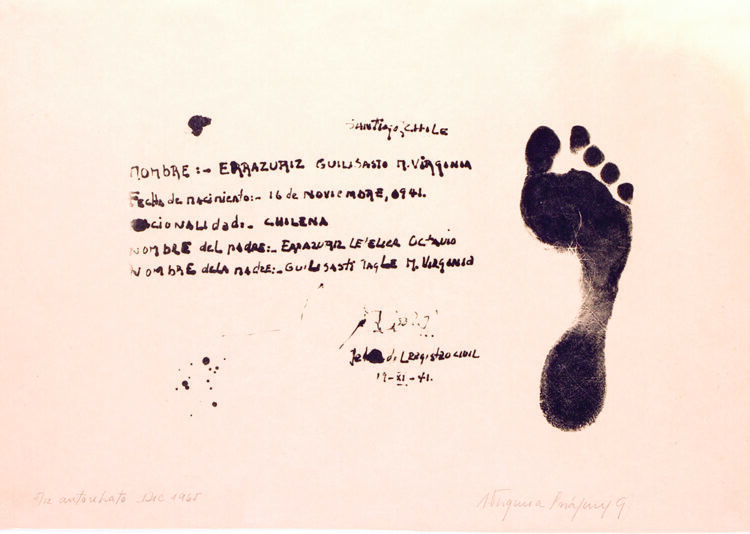 SANTIAGO, CHILE
NOMBRE :- ERRAZURIZ GUILISASTO M. VIRGINIA
Fecha de nacimiento:- 16 de NOVIEMBRE, 1941.
NACIONALIDAD:- CHILENA
NOMBRE del padre:- ERRAZURIZ LETELIER OCTAVIO
NOMBRE de la madre:- GUILISASTI TAGLE M. VIRGINIA
Jefe de L REGISTRO CIVIL
19-XI-41.
autorretrato Dic 1968
Virginia Errázuriz G